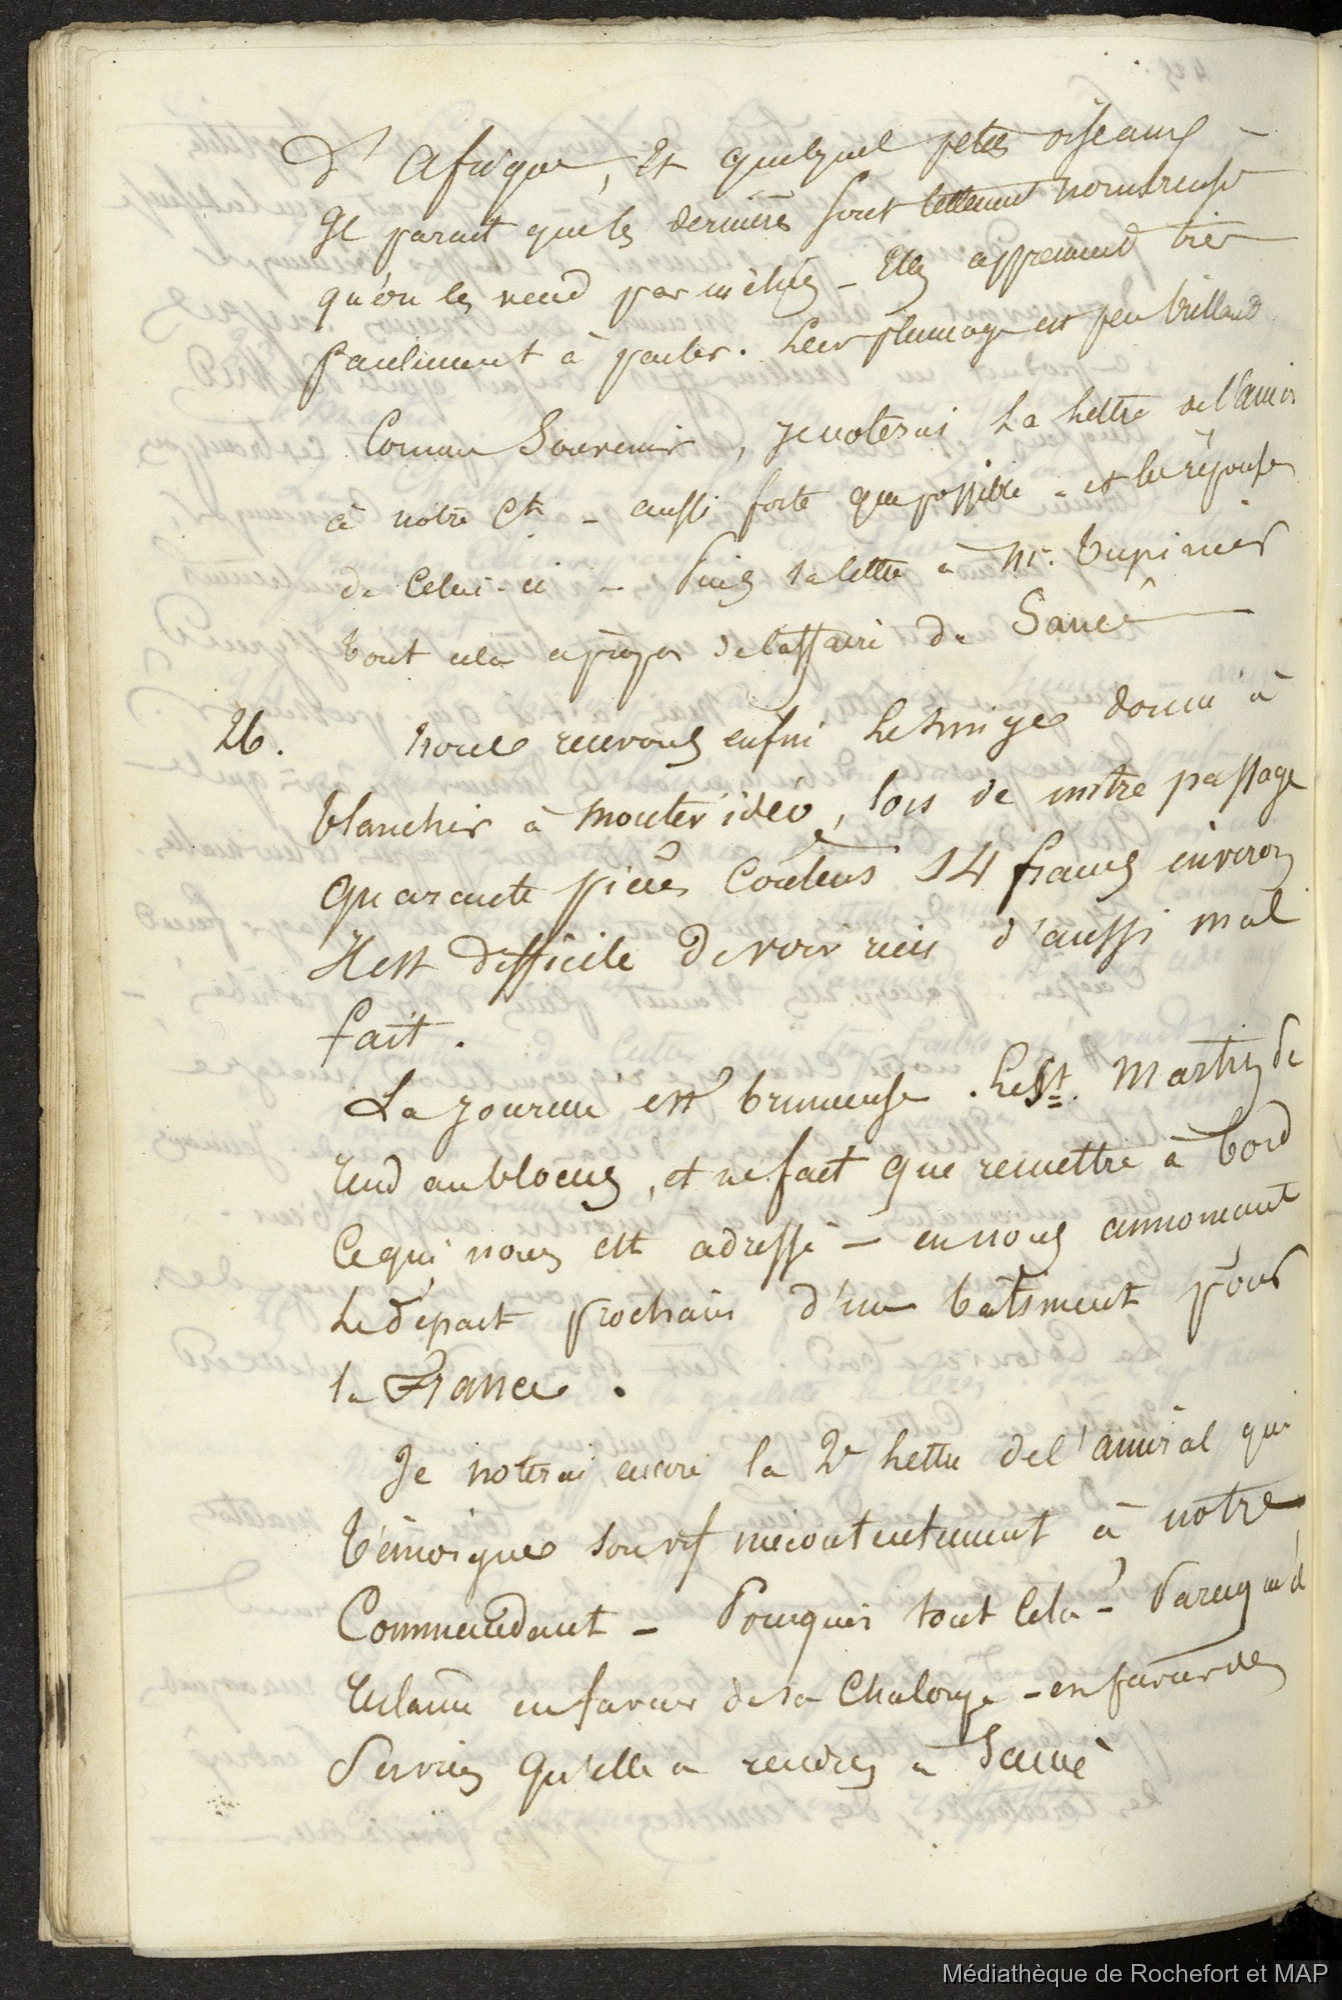 d'Afrique, Et quelques petits oiseaux -
Il parait que les dernières sont tellement nombreuses
qu'on les vend par - Elles apprennent très
facilement à parler. Leur plumage est peu brillant.
Comme Souvenir, je noterai La Lettre de l'ami
à notre Ct - aussi forte que possible - et la réponse
de celui-ci - Puis sa lettre à Mr. Tupinier
tout cela à propos de l'affaire de Sancé
26. nous recevons enfin le linge donné à
blanchir à Montevideo, lors de notre passage
quarante pièces coutent 14 francs environ
Il est difficile de voir rien d'aussi mal
fait.
La journée est brumeuse. Le St. Martin se
rend au blocus, et ne fait que remettre à bord
Ce qui nous est adressé - en nous annoncant
le départ prochain d'un bâtiment pour
la France.
Je noterai encore la 2e Lettre de l'amiral qui
témoigne son vif mécontentement à notre
Commandant - Pourquoi tout Cela - Parcequ'il
réclame en faveur de sa Chaloupe - en faveur des
Services qu'elle a rendus à Sancé
Médiathèque de Rochefort et MAP